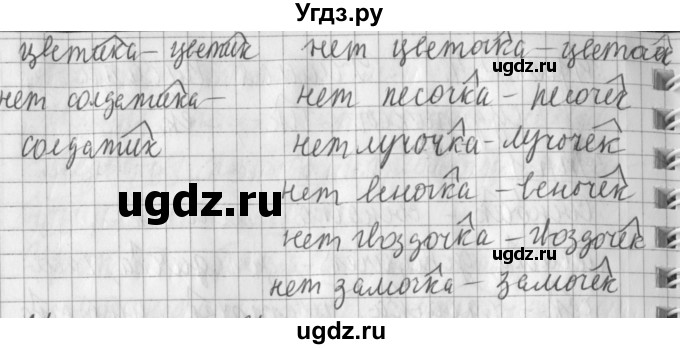 Угдз.ру
цветика – цветик нет цветочка – цветочек
нет солдатика – нет песочка – песочек
солдатик нет лучочка – лучочек
нет веночка – веночек
нет гвоздочка – гвоздочек
нет замочка – замочек
ugdz.ru
ugdz.ru
ugdz.ru
ugdz.ru
ugdz.ru